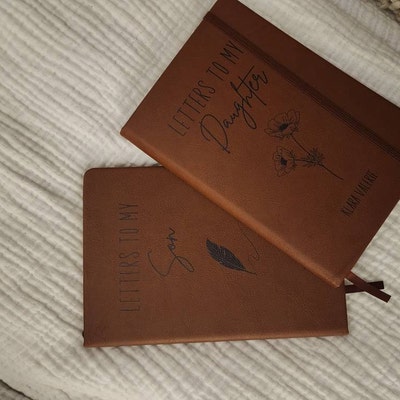 LETTERS TO MY
Daughter
LETTERS TO MY
Son